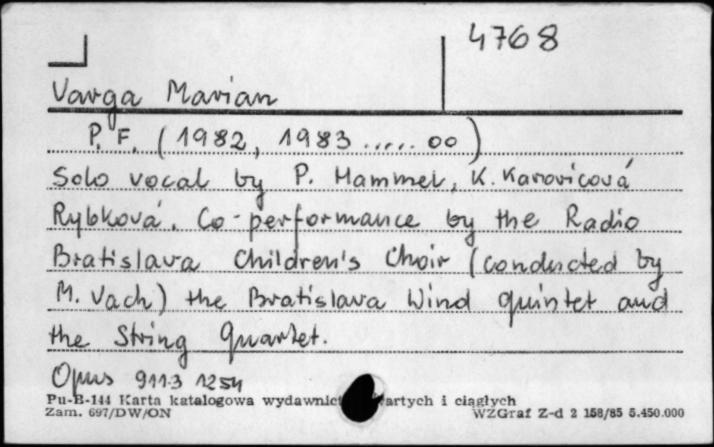 4768
Varga Marian
P. F. (1982, 1983 ..... oo)
Solo vocal by P. Hammel, K. Karovicová
Rybková. Co-performance by the Radio
Bratislava Children's Choir (conducted by
M. Vach) the Bratislava Wind quintet and
the String Quartet.
Opus 9113 1254
Pu-B-144 Karta katalogowa wydawnict artych i ciągłych
Zam. 697/DW/ON WZGraf Z-d 2 158/85 5.450.000